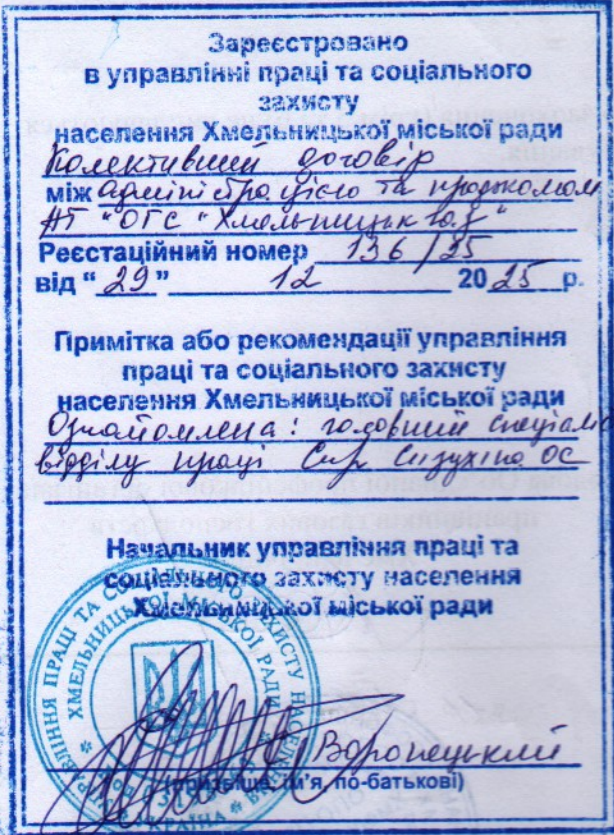 Зареєстровано
в управлінні праці та соціального
захисту
населення Хмельницької міської ради
Колективний договір
між адміністрацією та профкомом
АТ "ОГС "Хмельницькгаз"
Реєстаційний номер 136/25
від "29" 12 2025 р.
Примітка або рекомендації управління
праці та соціального захисту
населення Хмельницької міської ради
Ознайомлена: головний спеціаліс
відділу праці
Начальник управління праці та
соціального захисту населення
Хмельницької міської ради
Воронецький
(прізвище, ім'я, по-батькові)
УПРАВЛІННЯ ПРАЦІ ТА СОЦІАЛЬНОГО ЗАХИСТУ НАСЕЛЕННЯ
ХМЕЛЬНИЦЬКОЇ МІСЬКОЇ РАДИ
УКРАЇНА